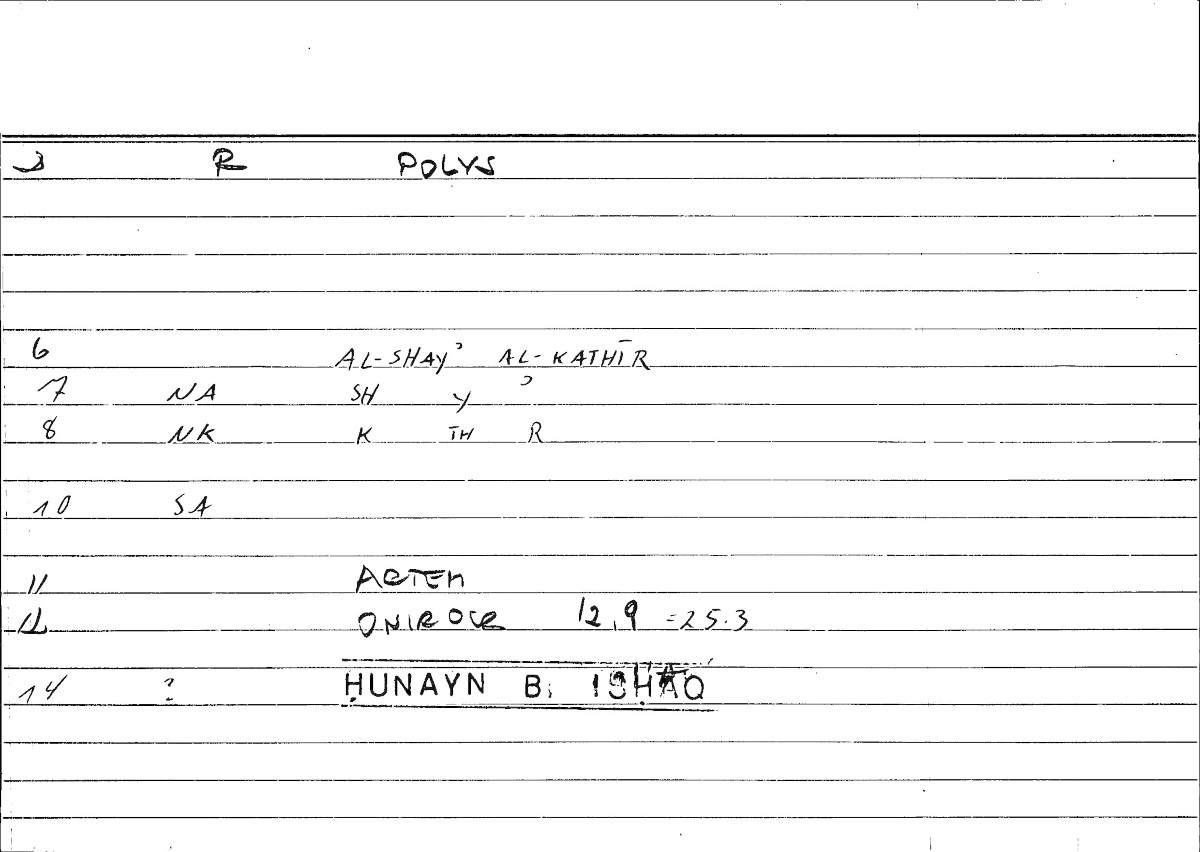 R POLYS
6 AL-SHAYʾ AL-KATHĪR
7 NA SH Y ʾ
8 NK K TH R
10 SA
11 ARTEM
12 ONIROCR 12,9 =25.3
14 ? ḤUNAYN B. ISḤĀQ